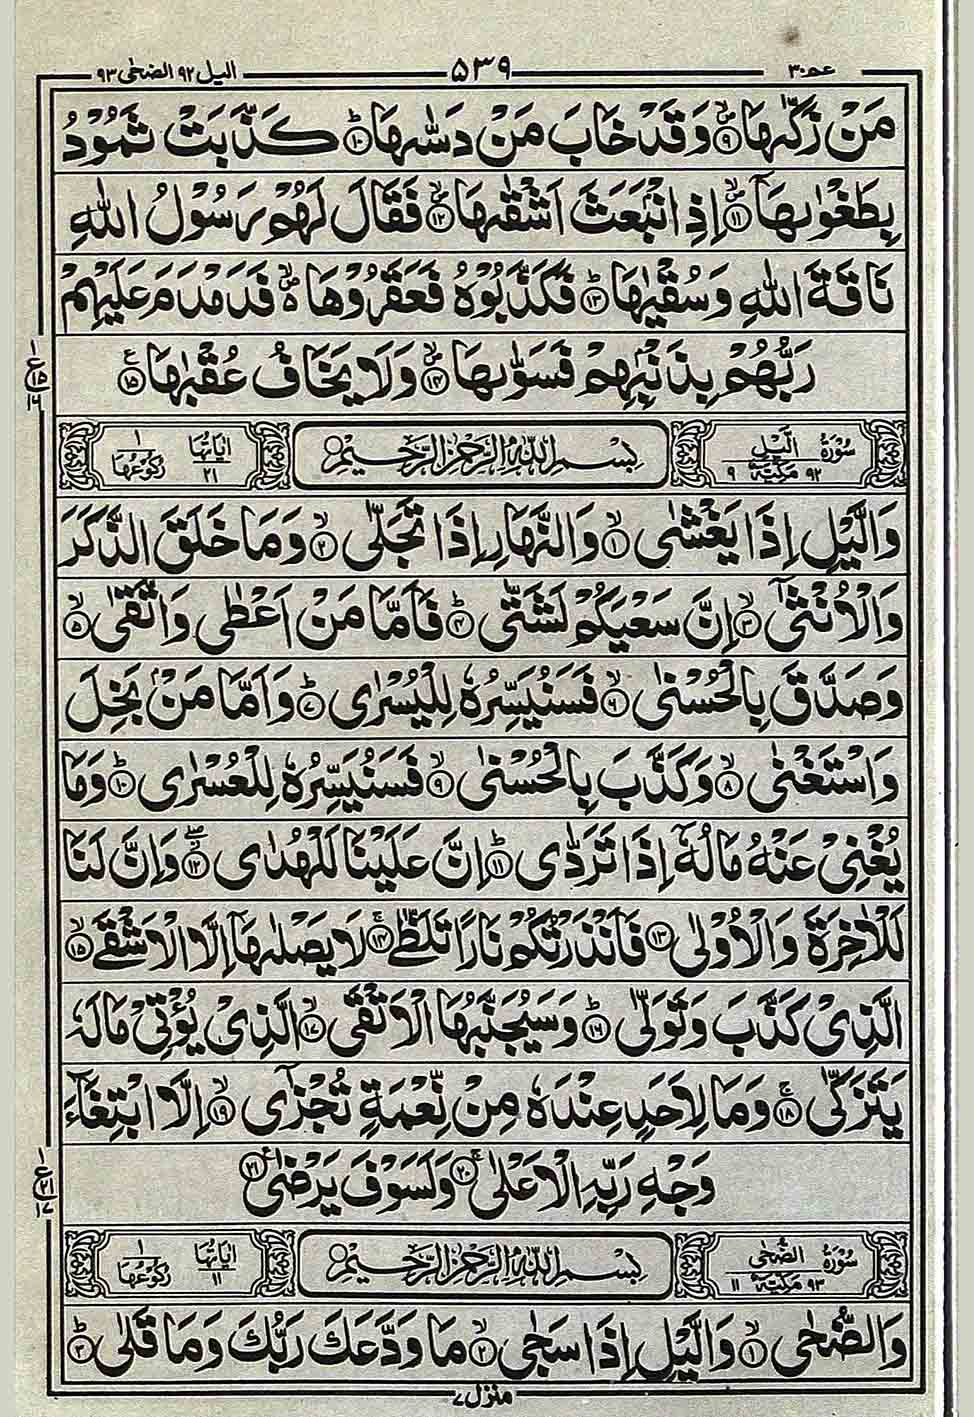 عم ۳۰ ۵۳۹ الیل ۹۲ الضحٰی ۹۳
مَنْ زَكّٰىهَا ۙ۹ وَقَدْ خَابَ مَنْ دَسّٰىهَا ؕ۱۰ كَذَّبَتْ ثَمُوْدُ
بِطَغْوٰىهَاۤ ۙ۱۱ اِذِ انْۢبَعَثَ اَشْقٰىهَا ۙ۱۲ فَقَالَ لَهُمْ رَسُوْلُ اللّٰهِ
نَاقَةَ اللّٰهِ وَسُقْيٰهَا ؕ۱۳ فَكَذَّبُوْهُ فَعَقَرُوْهَا ۙ۬ فَدَمْدَمَ عَلَيْهِمْ
رَبُّهُمْ بِذَنْۢبِهِمْ فَسَوّٰىهَا ۙ۱۴ وَلَا يَخَافُ عُقْبٰهَا ۱۵ ع
ع ۱ ۱۵ ۱۶
سُوْرَةُ الَّيْلِ ۹۲ مَكِّيَّةٌ ۹ بِسْمِ اللّٰهِ الرَّحْمٰنِ الرَّحِيْمِ اٰيَاتُهَا ۲۱ رُكُوْعُهَا ۱
وَالَّيْلِ اِذَا يَغْشٰى ۙ۱ وَالنَّهَارِ اِذَا تَجَلّٰى ۙ۲ وَمَا خَلَقَ الذَّكَرَ
وَالْاُنْثٰۤى ۙ۳ اِنَّ سَعْيَكُمْ لَشَتّٰى ؕ۴ فَاَمَّا مَنْ اَعْطٰى وَاتَّقٰى ۙ۵
وَصَدَّقَ بِالْحُسْنٰى ۙ۶ فَسَنُيَسِّرُهٗ لِلْيُسْرٰى ؕ۷ وَاَمَّا مَنْۢ بَخِلَ
وَاسْتَغْنٰى ۙ۸ وَكَذَّبَ بِالْحُسْنٰى ۙ۹ فَسَنُيَسِّرُهٗ لِلْعُسْرٰى ؕ۱۰ وَمَا
يُغْنِىْ عَنْهُ مَالُهٗۤ اِذَا تَرَدّٰى ؕ۱۱ اِنَّ عَلَيْنَا لَلْهُدٰى ۖ۱۲ وَاِنَّ لَنَا
لَلْاٰخِرَةَ وَالْاُوْلٰى ۱۳ فَاَنْذَرْتُكُمْ نَارًا تَلَظّٰى ۚ۱۴ لَا يَصْلٰىهَاۤ اِلَّا الْاَشْقَى ۙ۱۵
الَّذِىْ كَذَّبَ وَتَوَلّٰى ؕ۱۶ وَسَيُجَنَّبُهَا الْاَتْقَى ۙ۱۷ الَّذِىْ يُؤْتِىْ مَالَهٗ
يَتَزَكّٰى ۚ۱۸ وَمَا لِاَحَدٍ عِنْدَهٗ مِنْ نِّعْمَةٍ تُجْزٰۤى ۙ۱۹ اِلَّا ابْتِغَآءَ
وَجْهِ رَبِّهِ الْاَعْلٰى ۚ۲۰ وَلَسَوْفَ يَرْضٰى ۲۱ ع
ع ۱ ۲۱ ۱۷
سُوْرَةُ الضُّحٰى ۹۳ مَكِّيَّةٌ ۱۱ بِسْمِ اللّٰهِ الرَّحْمٰنِ الرَّحِيْمِ اٰيَاتُهَا ۱۱ رُكُوْعُهَا ۱
وَالضُّحٰى ۙ۱ وَالَّيْلِ اِذَا سَجٰى ۙ۲ مَا وَدَّعَكَ رَبُّكَ وَمَا قَلٰى ؕ۳
منزل ۷